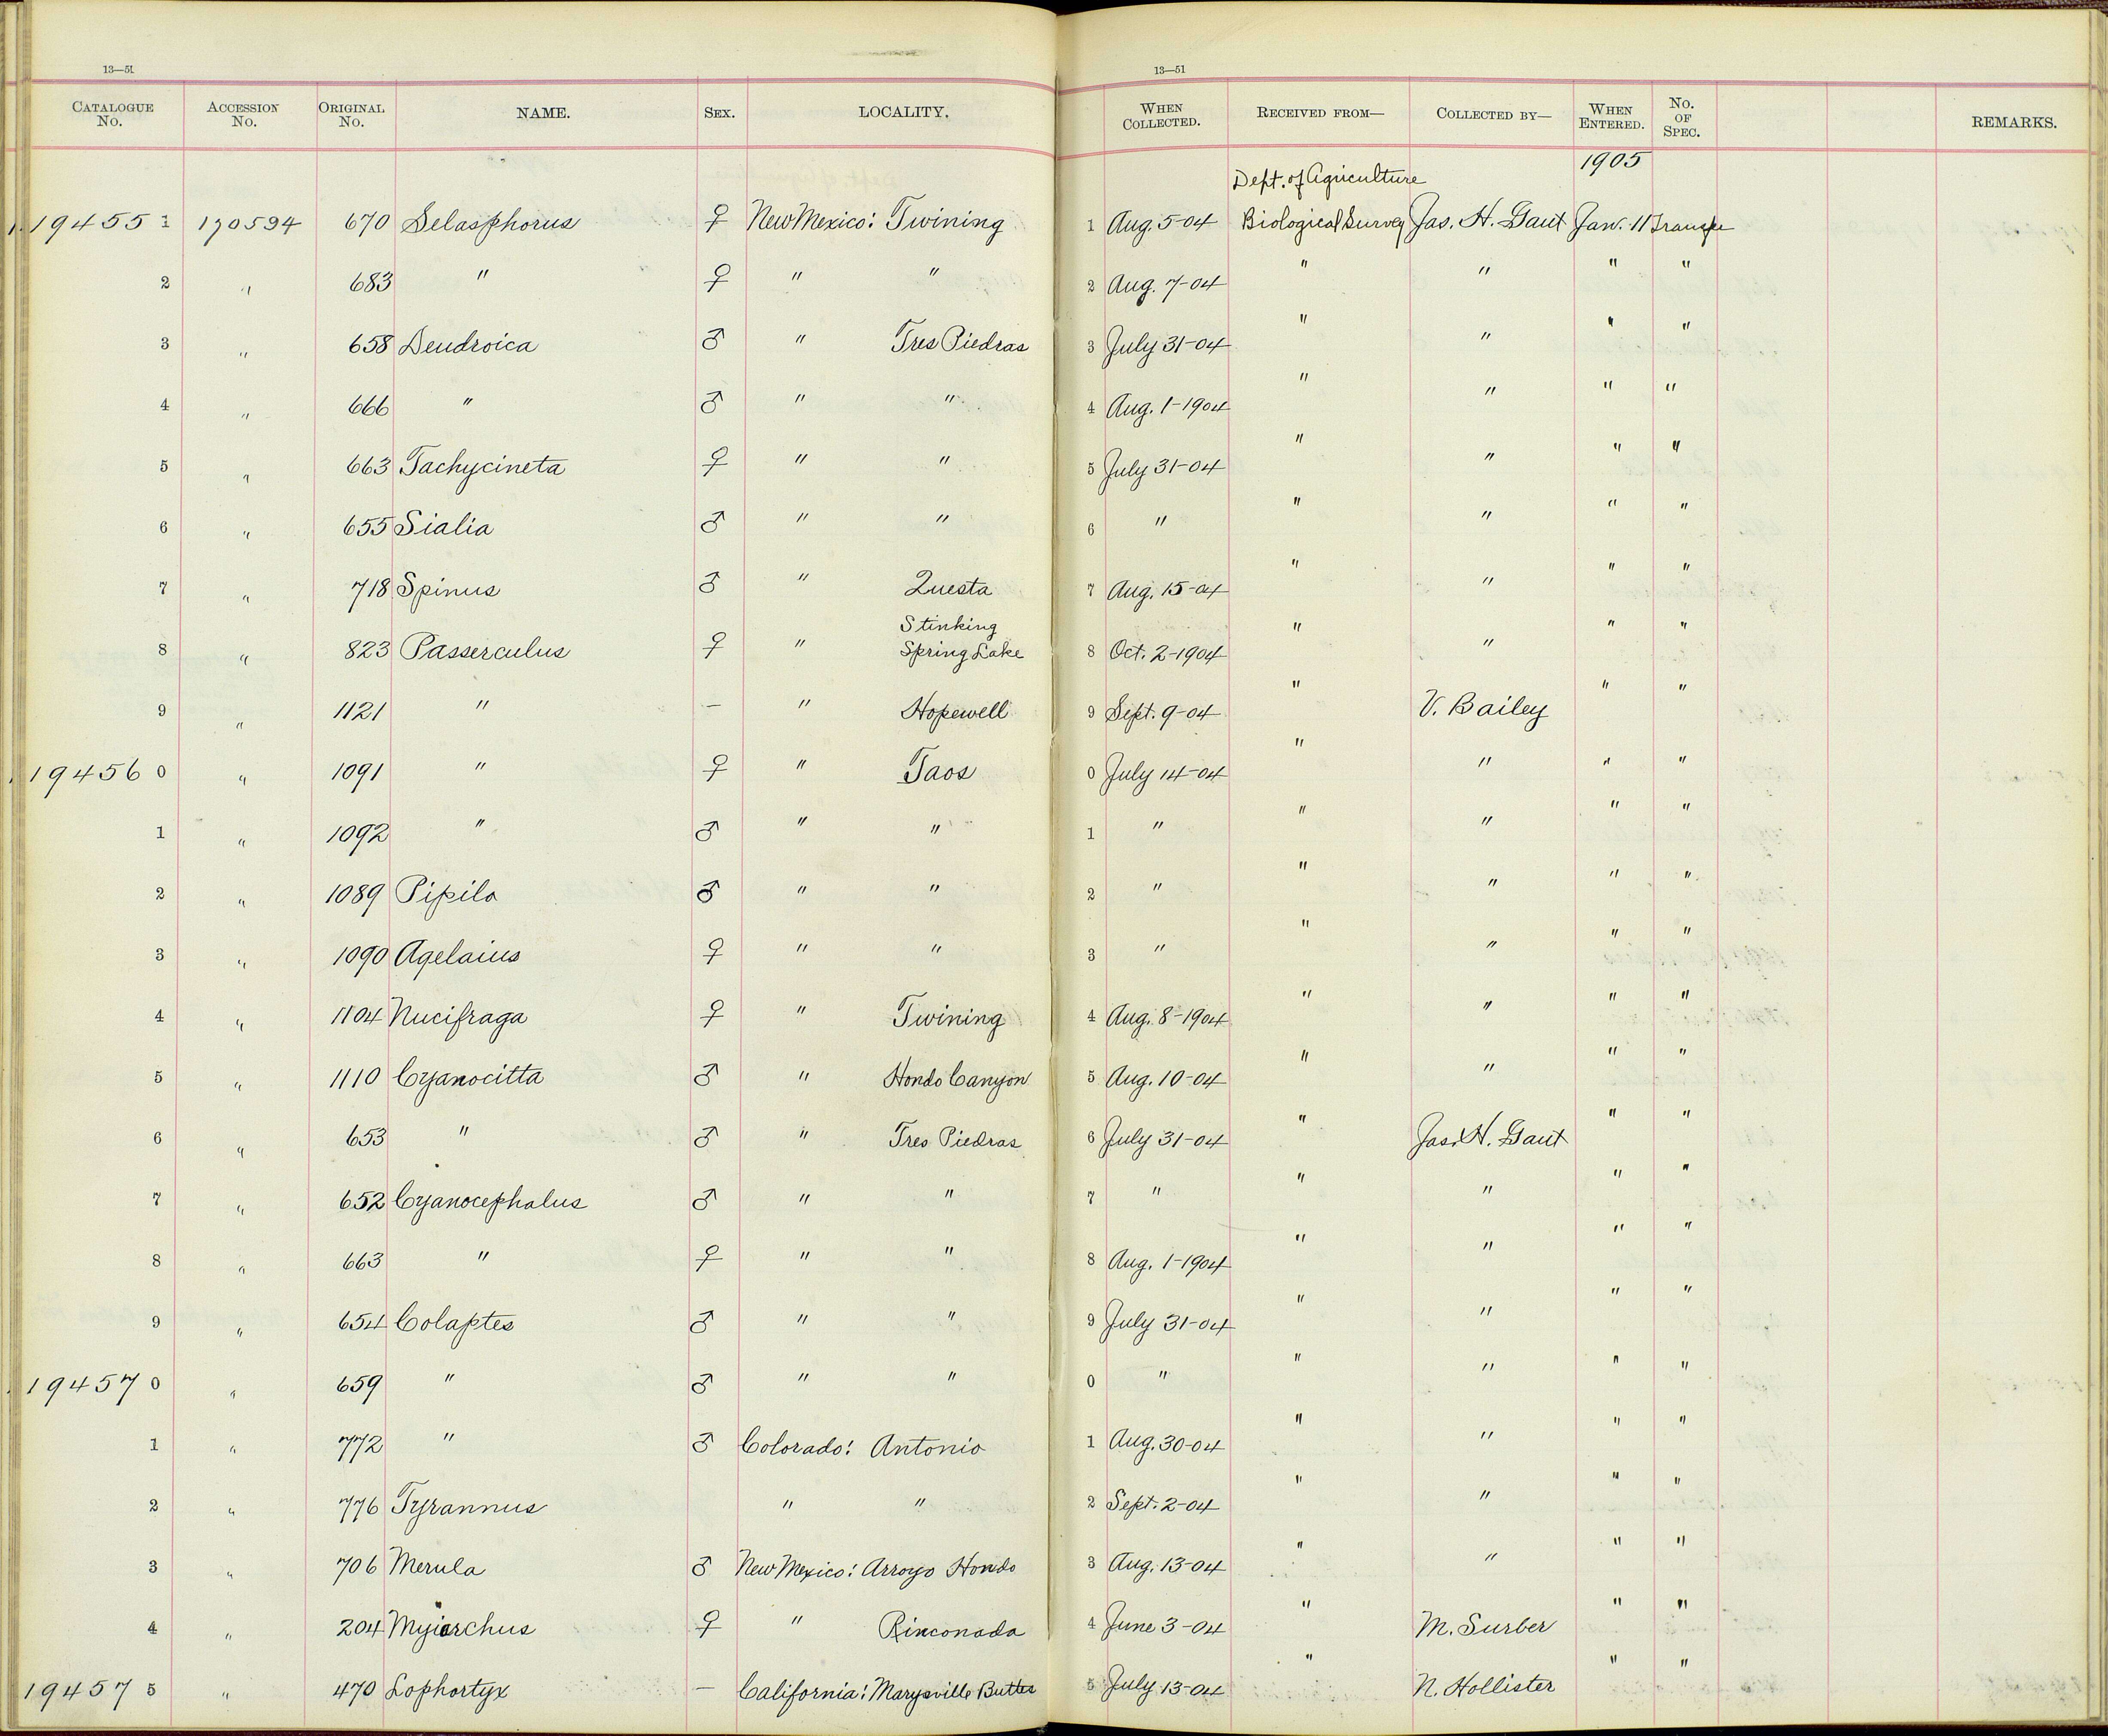 13—51 13—51
CATALOGUE No. ACCESSION No. ORIGINAL No. NAME. SEX. LOCALITY. WHEN COLLECTED. RECEIVED FROM— COLLECTED BY— WHEN ENTERED. No. OF SPEC. REMARKS.
1905
Dept. of Agriculture
19455 1 170594 670 Selasphorus ♀ New Mexico: Twining 1 Aug. 5-04 Biological Survey Jas. H. Gaut Jan. 11 Transfer
2 " 683 " ♀ " " 2 Aug. 7-04 " " " "
3 " 658 Dendroica ♂ " Tres Piedras 3 July 31-04 " " " "
4 " 666 " ♂ " " 4 Aug. 1-1904 " " " "
5 " 663 Tachycineta ♀ " " 5 July 31-04 " " " "
6 " 655 Sialia ♂ " " 6 " " " " "
7 " 718 Spinus ♂ " Questa 7 Aug. 15-04 " " " "
Stinking
8 " 823 Passerculus ♀ " Spring Lake 8 Oct. 2-1904 " " " "
9 " 1121 " — " Hopewell 9 Sept. 9-04 " V. Bailey " "
19456 0 " 1091 " ♀ " Taos 0 July 14-04 " " " "
1 " 1092 " ♂ " " 1 " " " " "
2 " 1089 Pipilo ♂ " " 2 " " " " "
3 " 1090 Agelaius ♀ " " 3 " " " " "
4 " 1104 Nucifraga ♀ " Twining 4 Aug. 8-1904 " " " "
5 " 1110 Cyanocitta ♂ " Hondo Canyon 5 Aug. 10-04 " " " "
6 " 653 " ♂ " Tres Piedras 6 July 31-04 " Jas. H. Gaut " "
7 " 652 Cyanocephalus ♂ " " 7 " " " " "
8 " 663 " ♀ " " 8 Aug. 1-1904 " " " "
9 " 654 Colaptes ♂ " " 9 July 31-04 " " " "
19457 0 " 659 " ♂ " " 0 " " " " "
1 " 772 " ♂ Colorado: Antonio 1 Aug. 30-04 " " " "
2 " 776 Tyrannus " " 2 Sept. 2-04 " " " "
3 " 706 Merula ♂ New Mexico: Arroyo Hondo 3 Aug. 13-04 " " " "
4 " 204 Myiarchus ♀ " Rinconada 4 June 3-04 " M. Surber " "
19457 5 " 470 Lophortyx — California: Marysville Buttes 5 July 13-04 " N. Hollister " "